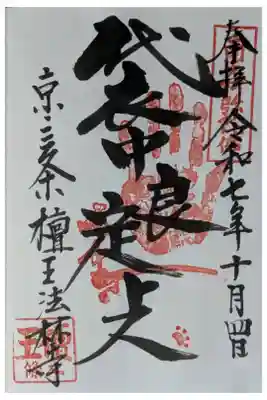 奉拝 令和七年十月四日
袋中良定上人
京三条檀王法林寺